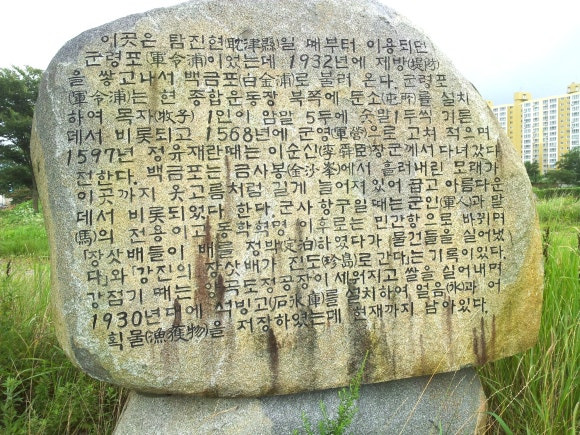 이곳은 탐진현(耽津縣)일 때부터 이용되던
군령포(軍令浦)이었는데 1932년에 제방(堤防)
을 쌓고나서 백금포(白金浦)로 불러 온다. 군령포
(軍令浦)는 현 종합운동장 북쪽에 둔소(屯所)를 설치
하여 목자(牧子) 1인이 암말 5두에 숫말 1두씩 기른
데서 비롯되고 1568년에 군영(軍營)으로 고쳐 적으며
1597년 정유재란때는 이순신(李舜臣)장군께서 다녀갔다
전한다. 백금포는 금사봉(金沙峯)에서 흘러내린 모래가
이곳까지 옷고름처럼 길게 늘어져 있어 곱고 아름다운
데서 비롯되었다. 한다. 군사 항구일 때는 군인(軍人)과 말
(馬)의 전용이고 동학혁명 이후로는 민간항으로 바뀌며
「장삿배들이 배를 정박(定泊)하였다가 물건들을 실어냈
다」와「강진의 장삿배가 진도(珍島)로 간다」는 기록이 있다.
강점기 때는 양곡도정공장이 세워지고 쌀을 실어내며
1930년대에 석빙고(石氷庫)를 설치하여 얼음(氷)과 어
획물(漁獲物)을 저장하였는데 현재까지 남아있다.